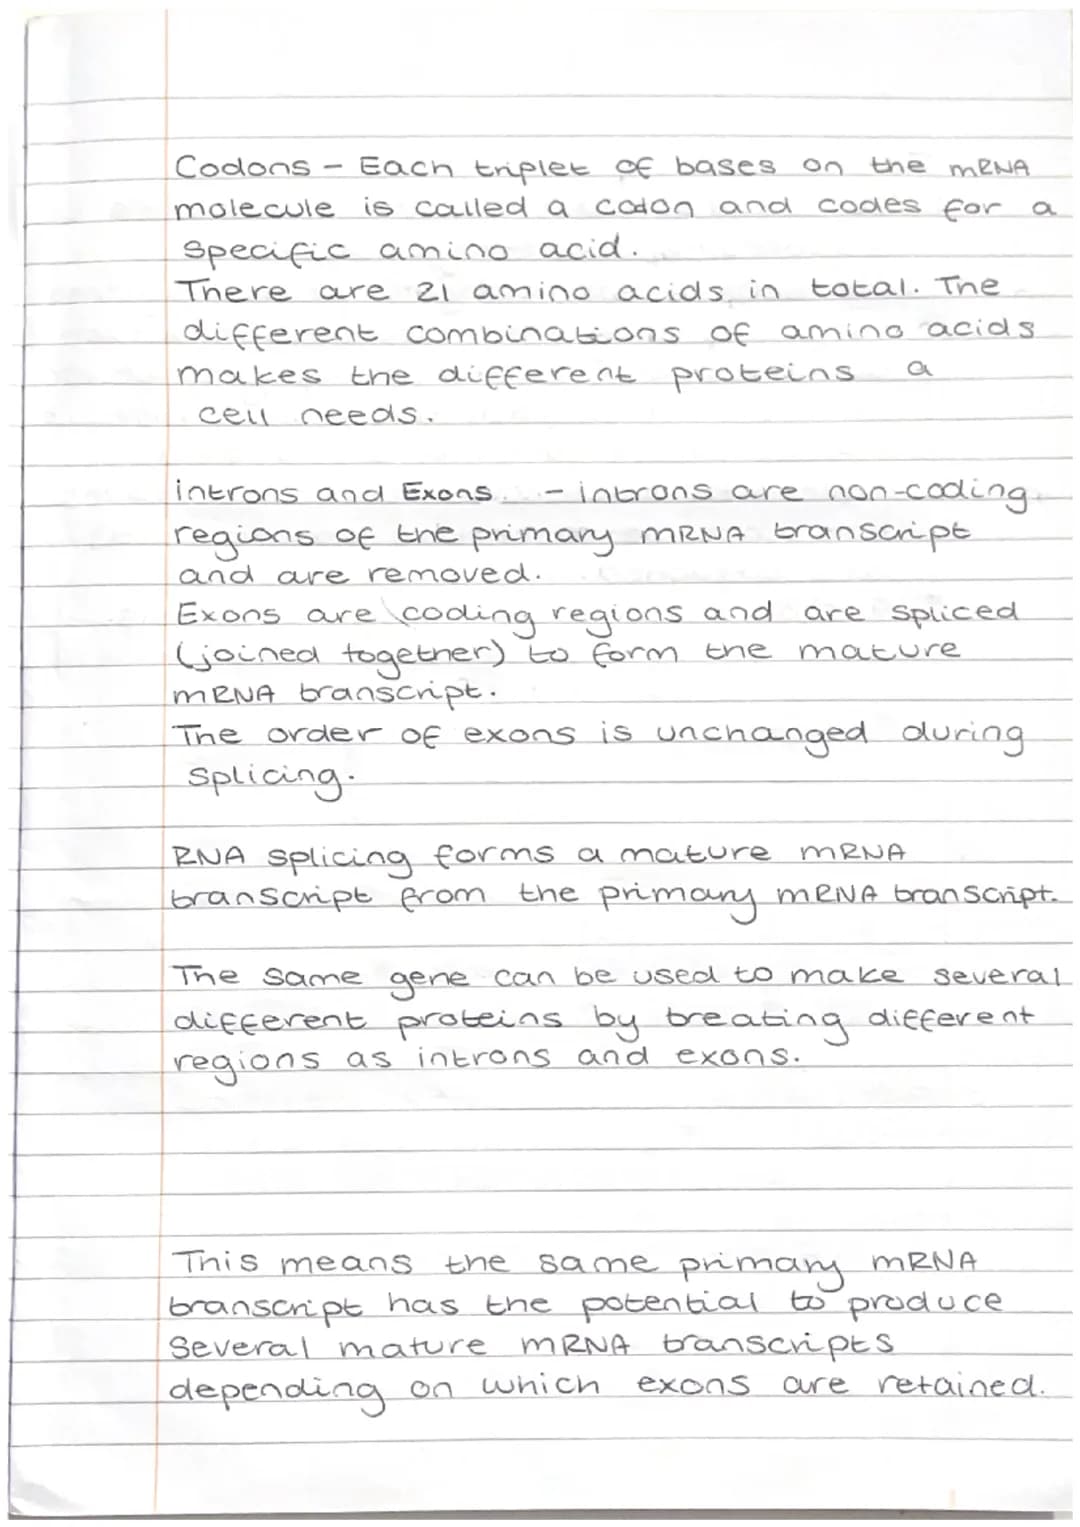 Codons - Each triplet of bases on the mRNA
molecule is called a codon and codes for a
specific amino acid.
There are 21 amino acids in total. The
different combinations of amino acids
makes the different proteins a
cell needs.
introns and Exons. - introns are non-coding
regions of the primary mRNA transcript
and are removed.
Exons are coding regions and are spliced
(joined together) to form the mature
mRNA transcript.
The order of exons is unchanged during
splicing.
RNA splicing forms a mature mRNA
transcript from the primary mRNA transcript.
The same gene can be used to make several
different proteins by treating different
regions as introns and exons.
This means the same primary mRNA
transcript has the potential to produce
several mature mRNA transcripts
depending on which exons are retained.